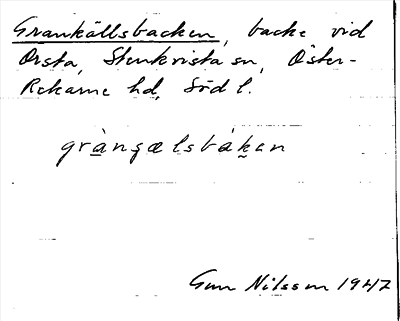 Grankällsbacken, backe vid
Orsta, Stenkvista sn, Öster-
Rekarne hd, Södl.
gràngælsbákan
Gun Nilsson 1947